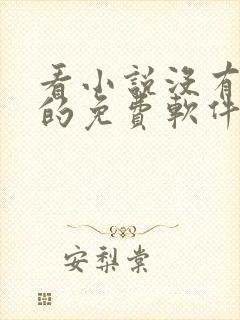 看小說沒有
的免費軟件
安梨棠